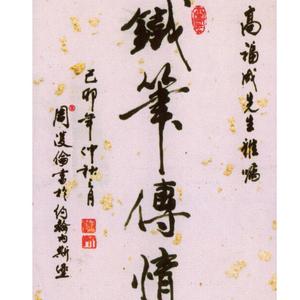 高福成先生雅嘱
鐵筆傳情
己卯年仲秋之月
周 倫書於約翰內斯堡